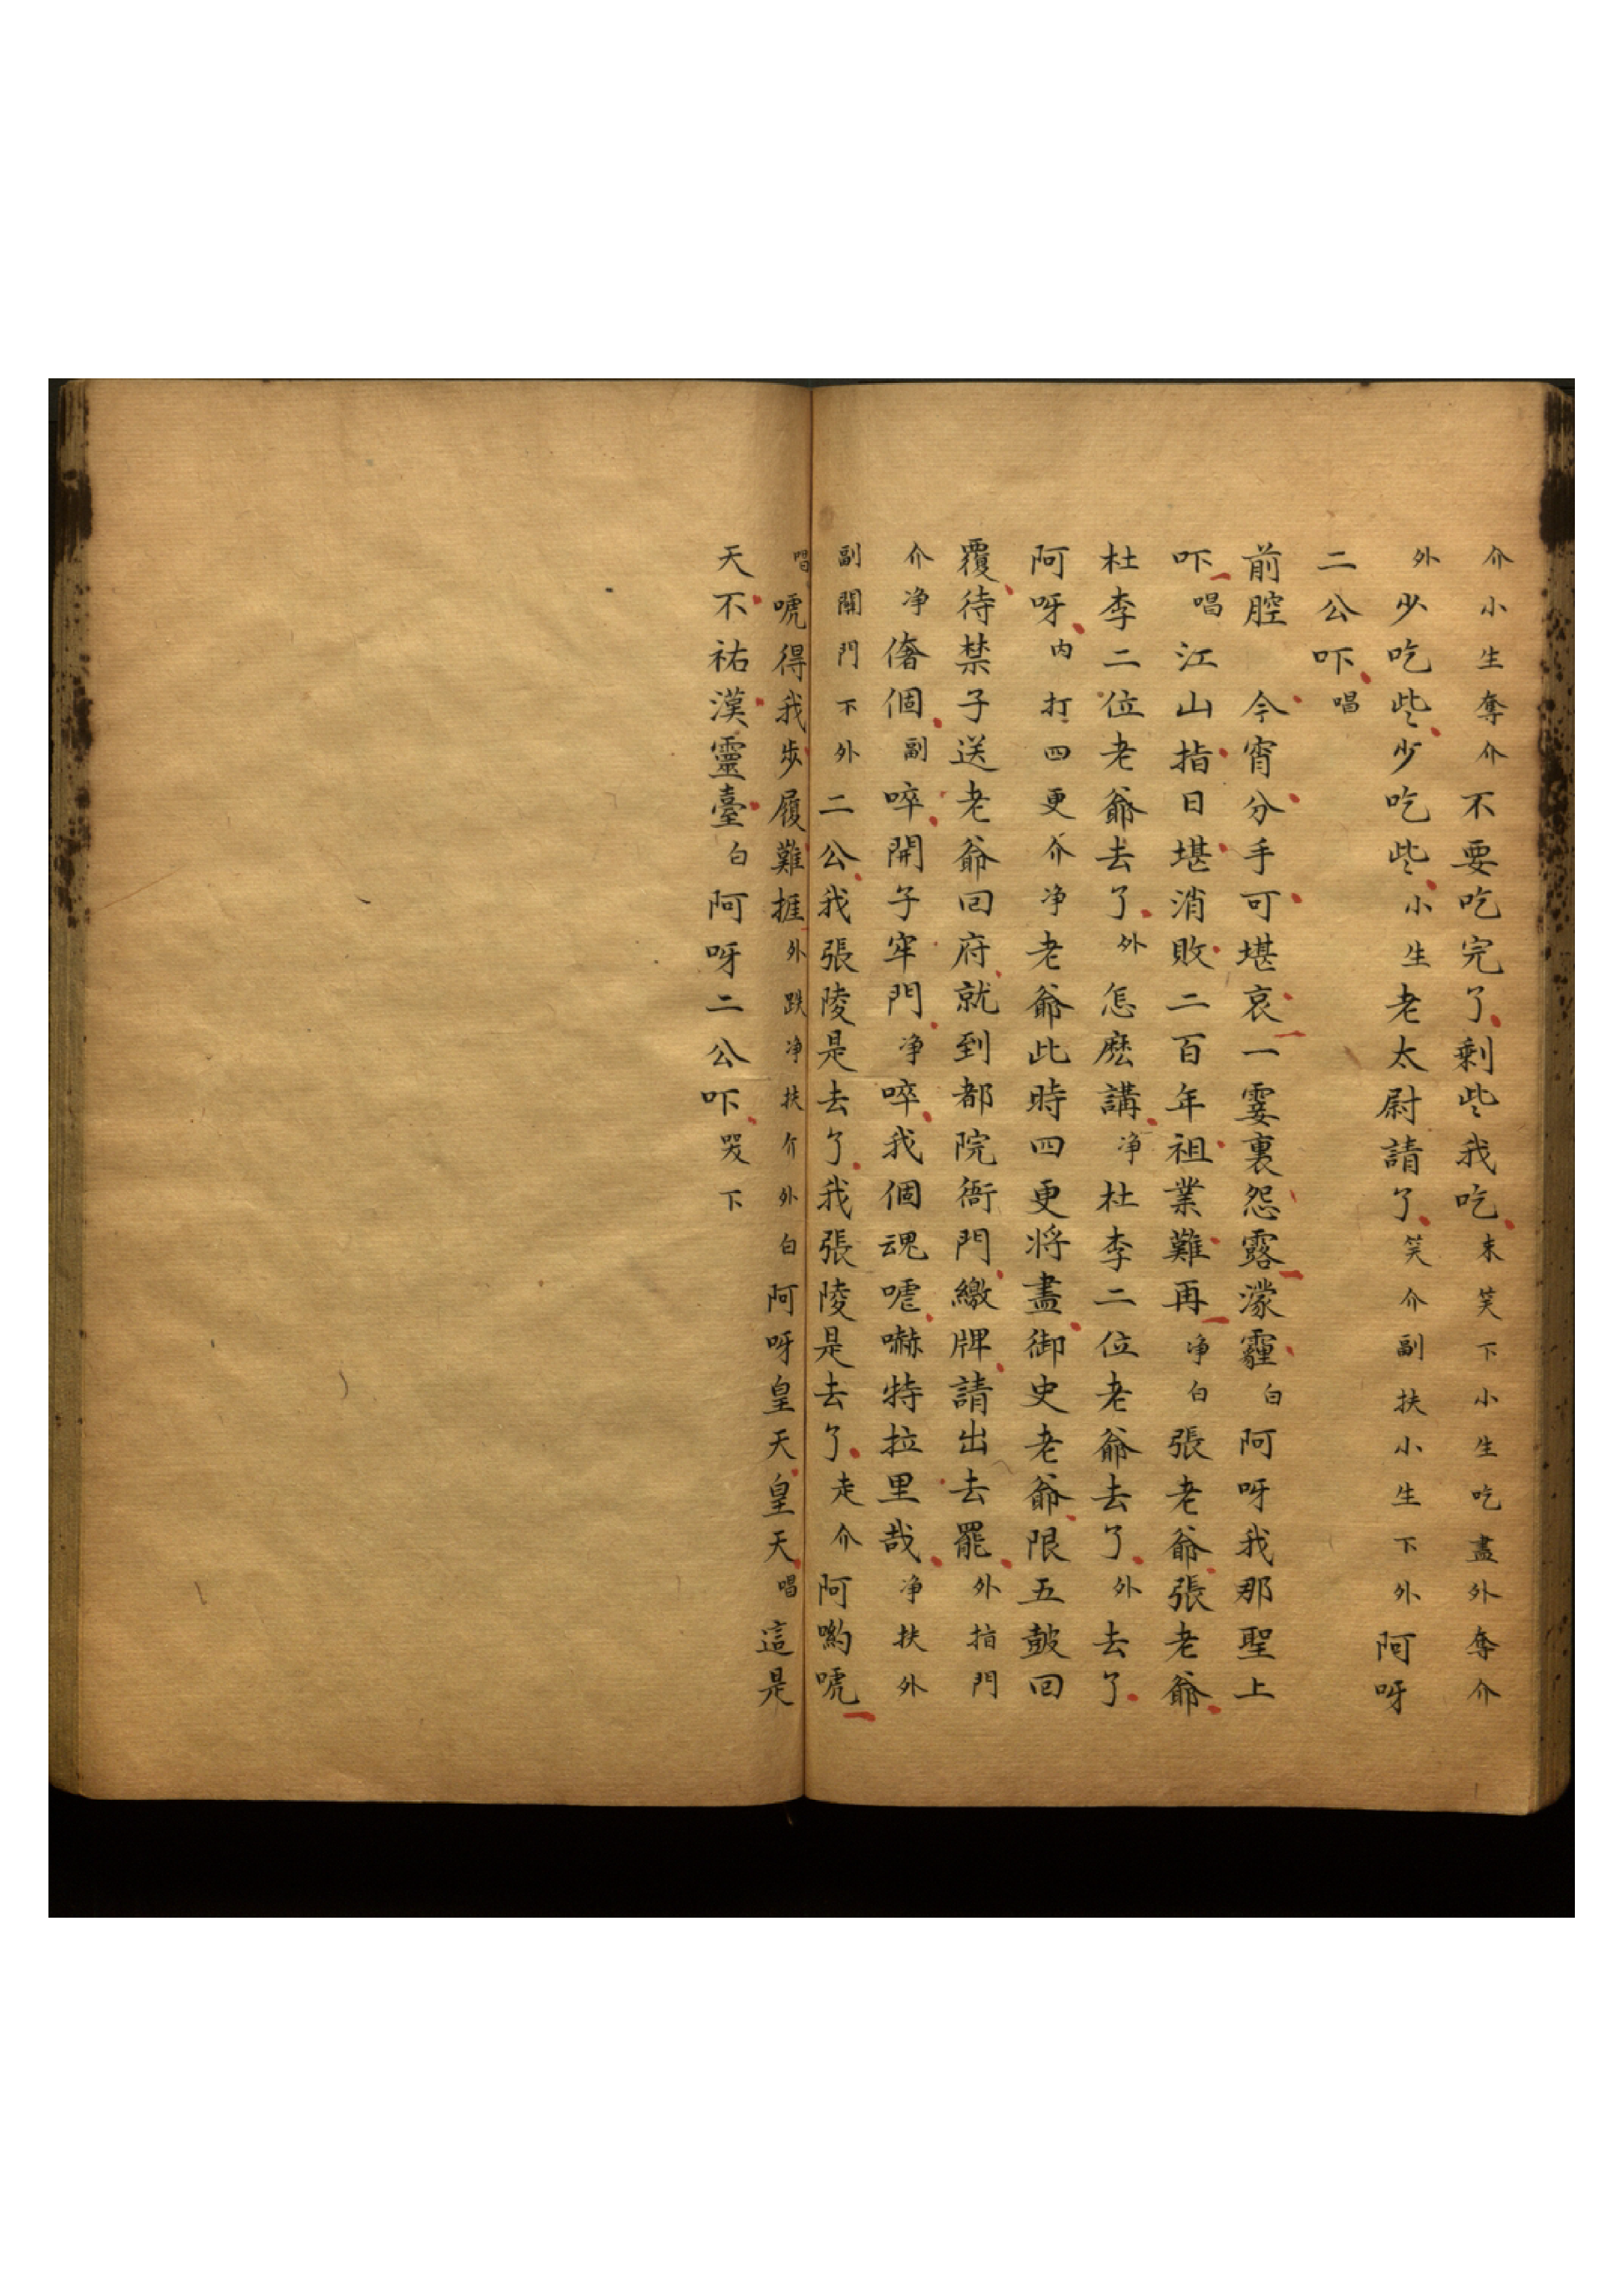 介小生奪介不要吃完了剩些我吃末笑下小生吃盡外奪介
外少吃些少吃些小生老太尉請了笑介副扶小生下外阿呀
二公吓唱
前腔今宵分手可堪哀一霎裏怨露濛霾白阿呀我那聖上
吓唱江山指日堪消敗二百年祖業難再净白張老爺張老爺
杜李二位老爺去了外怎麽講净杜李二位老爺去了外去了
阿呀内打四更介净老爺此時四更將盡御史老爺限五鼓回
覆待禁子送老爺回府就到都院衙門繳牌請出去罷外指門
介净偺個副啐開子牢門净啐我個魂唬嚇特拉里哉净扶外
副開門下外二公我張陵是去了我張陵是去了走介阿喲唬
唱唬得我步履難捱外跌净扶介外白阿呀皇天皇天唱這是
天不祐漢靈臺白阿呀二公吓哭下